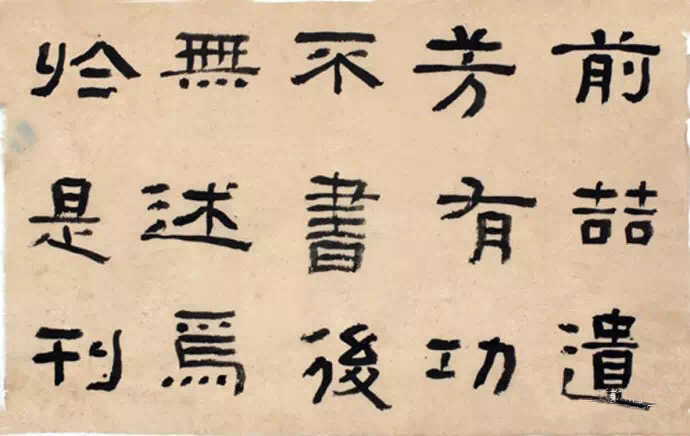 前喆遺
芳有功
不書後
無述焉
於是刊